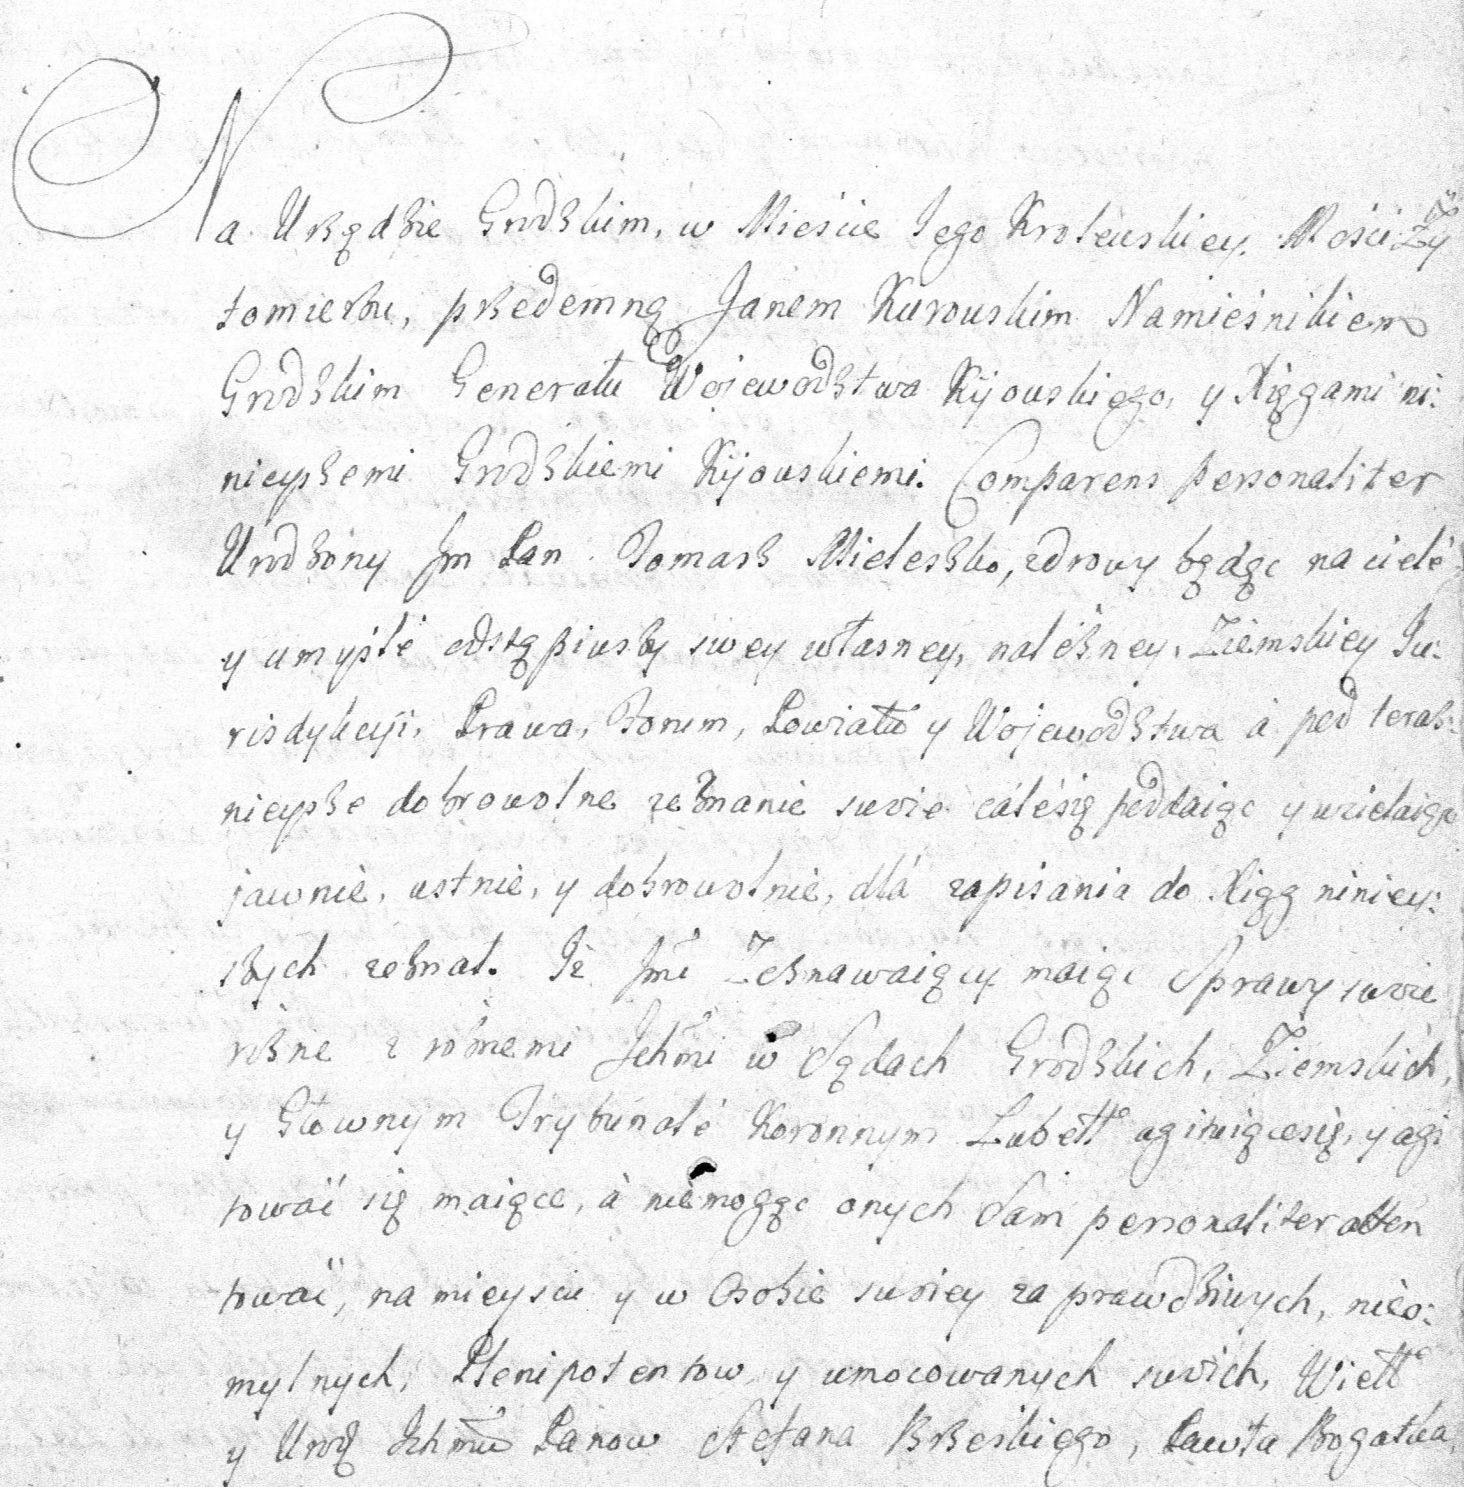 Na Urzędzie Grodzkim, w Mieście Jego Krolewskiey Mości Ży
tomierzu, przedemną Janem Kurowskim Namieśnikiem
Grodzkim Generału Wojewodztwa Kijowskiego, y Xięgami ni:
nieyszemi Grodzkiemi Kijowskiemi. Comparens personaliter
Urodzony Jm Pan Tomasz Mieleszko, zdrowy będąc na ciele
y umyśle odstąpiwszy swey własney, należney, Ziemskiey Ju:
risdykcyi, Prawa, Forum, Powiatu y Wojewodztwa á pod teraz:
nieysze dobrowolne zeznanie swoie cáłe się poddaiąc y wcielaiąc
jawnie, ustnie, y dobrowolnie, dlá zapisania do Xiąg niniey:
szych zeznał. Iż Jmć Zeznawaiący maiąc Sprawy swoie
rożne z rożnemi Ichmć w Sądach Grodzkich, Ziemskich,
y Głownym Trybunale Koronnym Lubell agituiącesię, y agi
tować się maiące, á niemogąc onych Sam personaliter atten
tować, na mieyscu y w Osobie swoiey za prawdziwych, nieo:
mylnych, Plenipotentow y umocowanych swoich, Wiell
y Urod Ichmw Panow Stefana Brzeskiego, Pawła Bogatka